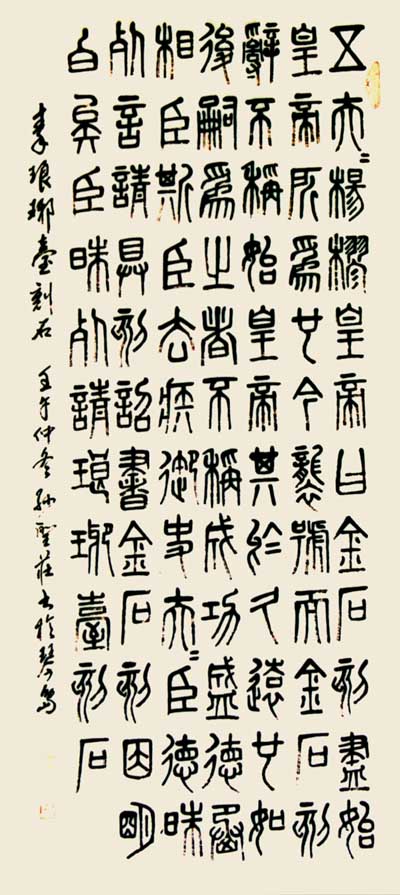 五夫＝楊樛皇帝曰金石刻盡始
皇帝所爲也今襲號而金石刻
辭不稱始皇帝其於久遠也如
後嗣爲之者不稱成功盛德丞
相臣斯臣去疾御史夫＝臣德昧
死言請具刻詔書金石刻因明
白矣臣昧死請琅琊臺刻石
秦琅琊臺刻石 壬午仲冬 孫聖莊書於琴島